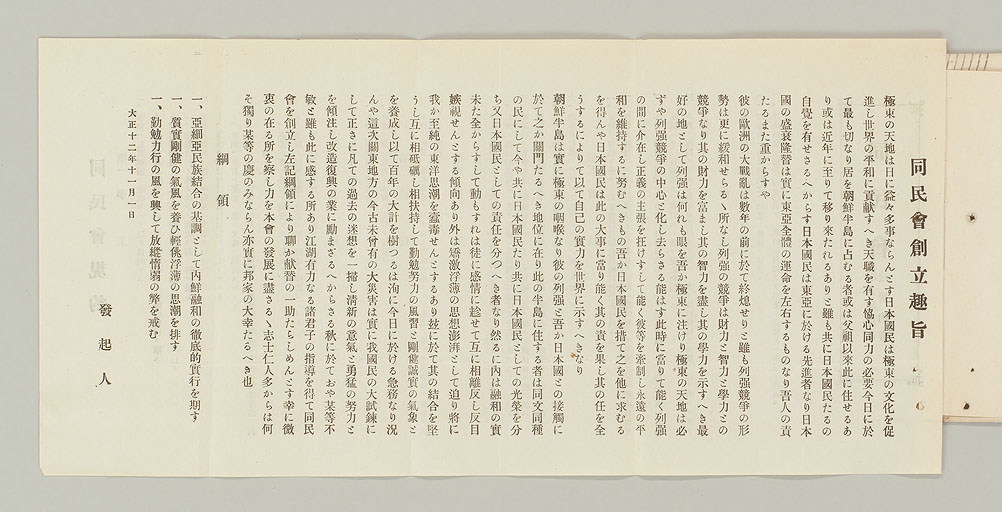 同民會創立趣旨
極東の天地は日に益々多事ならんとす日本國民は極東の文化を促
進し世界の平和に貢獻すへき天職を有す恊心同力の必要今日に於
て最も切なり居を朝鮮半島に占むる者或は父祖以來此に住せるあ
り或は近年に至りて移り來れるありと雖も共に日本國民たるの
自覺を有せさるへからす日本國民は東亞に於ける先進者なり日本
國の盛衰隆替は實に東亞全體の運命を左右するものなり吾人の責
たるまた重からすや
彼の歐洲の大戰亂は數年の前に於て終熄せりと雖も列强競爭の形
勢は更に緩和せらるゝ所なし列强の競爭は財力と智力と學力との
競爭なり其の財力を富まし其の智力を盡し其の學力を示すへき最
好の地として列强は何れも眼を吾か極東に注けり極東の天地は必
すや列强競爭の中心と化し去らさる能はす此時に當りて能く列强
の間に介在し正義の主張を抂けすして能く彼等を牽制し永遠の平
和を維持するに努むへきもの吾か日本國民を措て之を他に求むる
を得んや日本國民は此の大事に當り能く其の責を果し其の任を全
うするによりて以て自己の實力を世界に示すへきなり
朝鮮半島は實に極東の咽喉なり彼の列强と吾か日本國との接觸に
於て之か關門たるへき地位に在り此の半島に住する者は同文同種
の民にして今や共に日本國民たり共に日本國民としての光榮を分
ち又日本國民としての責任を分つへき者なり然るに内は融和の實
未た全からすして動もすれは徒に感情に趁せて互に相離反し反目
嫉視せんとする傾向あり外は矯激浮薄の思想澎湃として迫り將に
我か至純の東洋思潮を蠹毒せんとするあり玆に於て其の結合を堅
うし互に相砥礪し相扶持して勤勉努力の風習と剛健誠實の氣象と
を養成し以て百年の大計を樹つるは洵に今日に於ける急務なり況
んや這次關東地方の今古未曾有の大災害は實に我國民の大試鍊に
して正さに凡ての過去の迷想を一掃し淸新の意氣と勇猛の努力と
を傾注し改造復興の業に勵まさるへからさる秋に於ておや某等不
敏と雖も此に感する所あり江湖有力なる諸君子の指導を得て同民
會を創立し左記綱領により聊か獻替の一助たらしめんとす幸に微
衷の在る所を察し力を本會の發展に盡さるゝ志士仁人多からは何
そ獨り某等の慶のみならん亦實に邦家の大幸たるへき也
綱領
一、亞細亞民族結合の基調として内鮮融和の徹底的實行を期す
一、質實剛健の氣風を養ひ輕佻浮薄の思潮を排す
一、勤勉力行の風を興して放縱惰弱の弊を戒む
大正十三年十一月一日
發起人